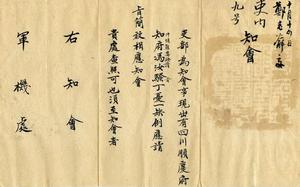 十月十四日
吏內
九号
知會
吏部為知會事現出有四川順慶府
知府馮汝騤丁憂一缺例應請
旨簡放相應知會
貴處查照可也須至知會者
右知會
軍機處